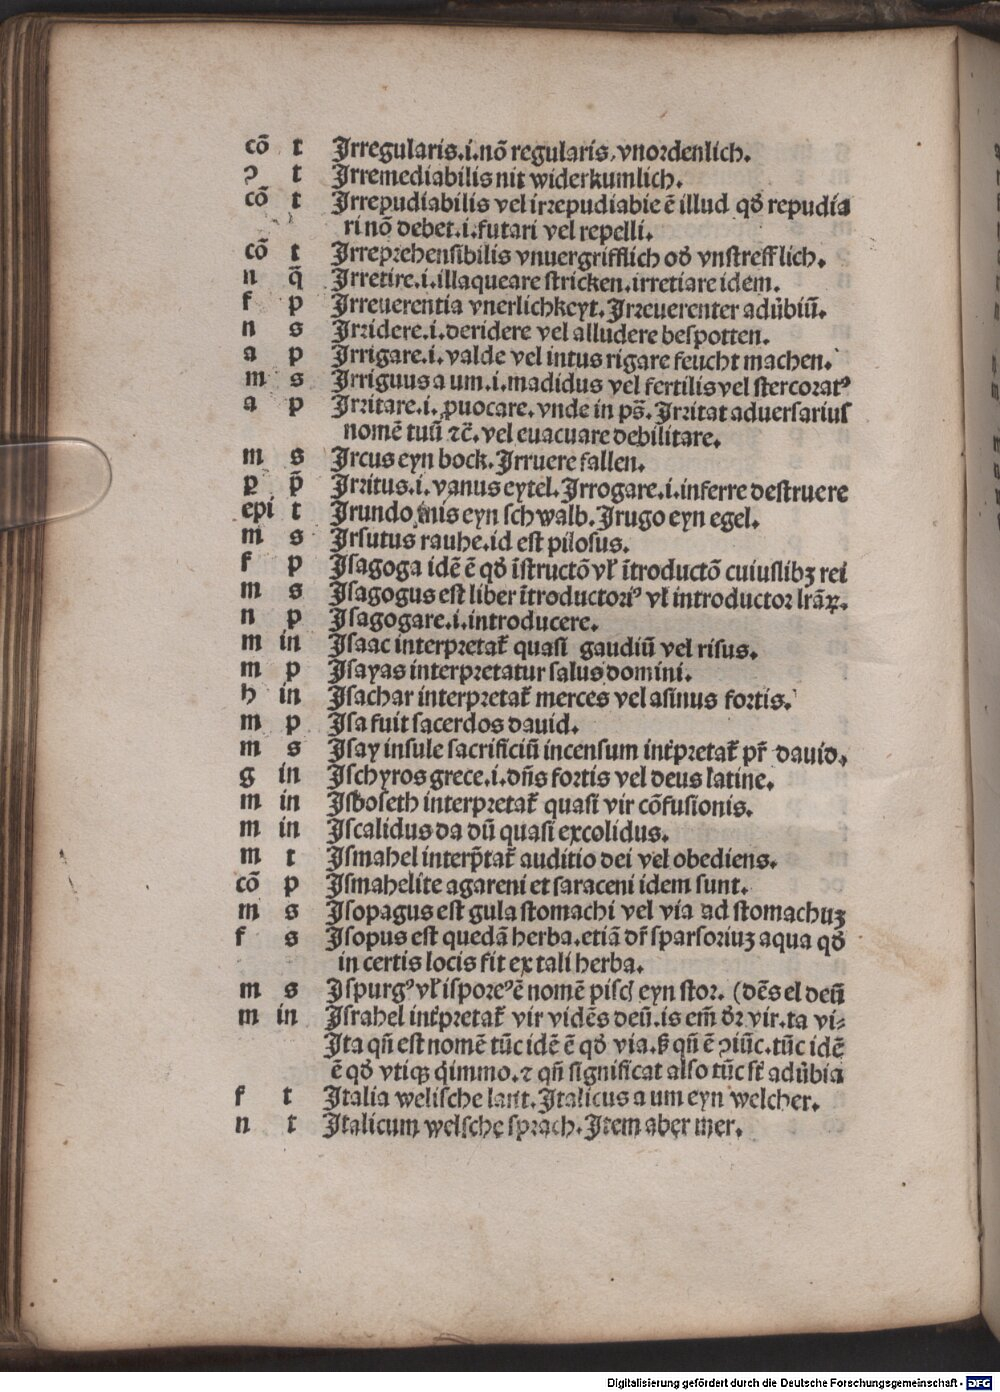 cō t Jrregularis.i.nō regularis, vnordenlich.
ꝯ t Jrremediabilis nit widerkumlich.
cō t Jrrepudiabilis vel irrepudiabie ē illud qd̛ repudia
ri nō debet.i.futari vel repelli.
cō t Jrreprehensibilis vnuergrifflich od̛ vnstrefflich.
n q̄ Jrretire.i.illaqueare stricken.irretiare idem.
f p Jrreuerentia vnerlichkeyt.Jrreuerenter adu̓biū.
n s Jrridere.i.deridere vel alludere bespotten.
a p Jrrigare.i.valde vel intus rigare feucht machen.
m s Jrriguus a um.i.madidus vel fertilis vel stercoratꝰ
a p Jrritare.i.ꝓuocare.vnde in ps̄. Jrritat aduersarius
nomē tuū ⁊c̄.vel euacuare debilitare.
m s Jrcus eyn bock.Jrruere fallen.
ꝑ p̄ Jrritus.i.vanus eytel.Jrrogare.i.inferre destruere
epi t Jrundo inis eyn schwalb.Jrugo eyn egel.
m s Jrsutus rauhe.id est pilosus.
f p Jsagoga idē ē qd̛ īstructō vł ītroductō cuiuslibꝫ rei
m s Jsagogus est liber ītroductoriꝰ vł introductor lrāꝝ.
n p Jsagogare.i.introducere.
m in Jsaac interpretat̄ quasi gaudiū vel risus.
m p Jsayas interpretatur salus domini.
h in Jsachar interpretat̄ merces vel asinus fortis.
m p Jsa fuit sacerdos dauid.
m s Jsay insule sacrificiū incensum int̓pretat̄ pr̄ dauid.
g in Jschyros grece.i.dn̄s fortis vel deus latine.
m in Jsboseth interpretat̄ quasi vir cōfusionis.
m in Jscalidus da dū quasi excolidus.
m t Jsmahel interp̄tat̄ auditio dei vel obediens.
cō p Jsmahelite agareni et saraceni idem sunt.
m s Jsopagus est gula stomachi vel via ad stomachuꝫ
f s Jsopus est quedā herba.etiā dr̄ sparsoriuꝫ aqua qd̛
in certis locis fit ex tali herba.
m s Jspurgꝰ vł isporeꝰ ē nomē pisc̄ eyn stor. (dēs el deū
m in Jsrahel int̓pretat̄ vir vidēs deū.is em̄ d̛r vir.ra vi-
Jta qn̄ est nomē tūc idē ē qd̛ via.ꝫ qn̄ ē ꝯiūc.tūc idē
ē qd̛ vtiqꝫ q̓immo.⁊ qn̄ significat also tūc st̄ adu̓bia
f t Jtalia welische lant.Jtalicus a um eyn welcher.
n t Jtalicum welsche sprach.Jtem aber mer.
Digitalisierung gefördert durch die Deutsche Forschungsgemeinschaft - DFG